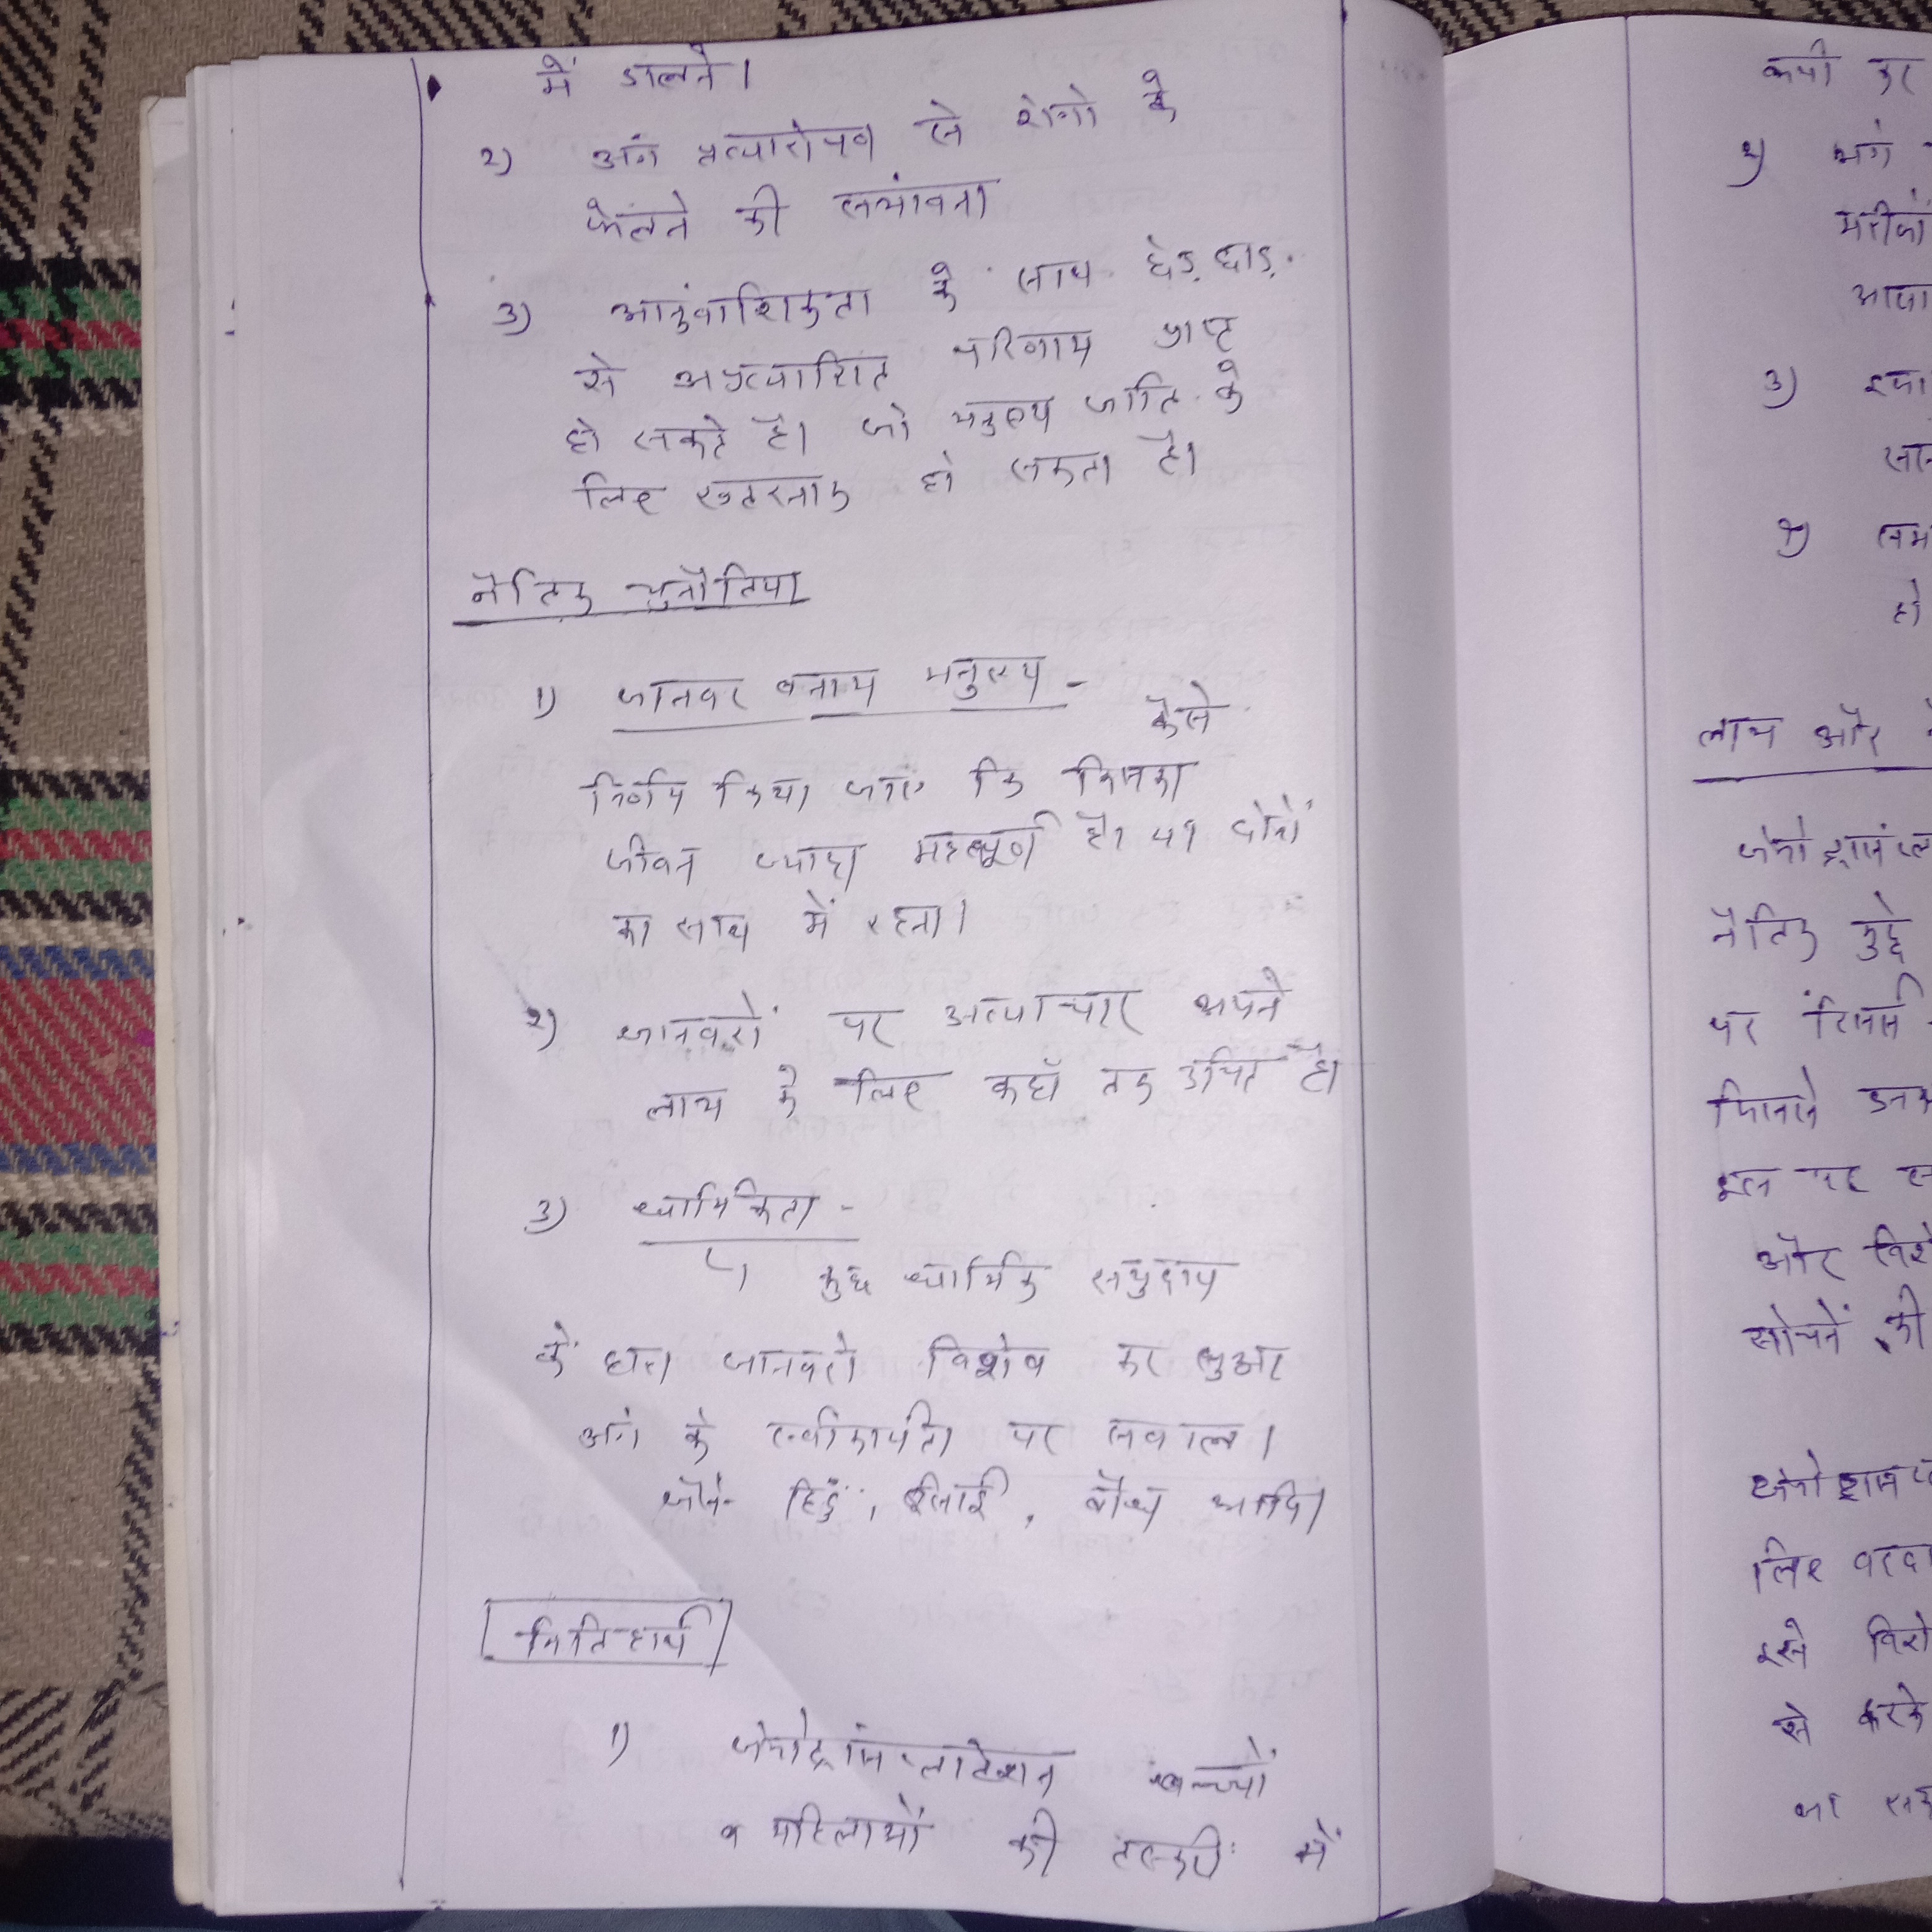 में डालने।
2) अंग प्रत्यारोपण से रोगो के
फेलने की सभांवना
3) आनुंवाशिकता के साथ छेड़ छाड़.
से अप्रत्याशित परिणाम प्राप्त
हो सकते है। जो मनुष्य जाति के
लिए खतरनाक हो सकता है।
नैतिक चुनौतिया
1) जानवर बनाम मनुष्य - कैसे
निर्णय किया जाए कि किसका
जीवन ज्यादा महत्वपूर्ण है। या दोनों
का साथ में रहना।
2) जानवरों पर अत्याचार अपने
लाभ के लिए कहाँ तक उचित है।
3) धार्मिकता -
कुछ धार्मिक समुदाय
के द्वारा जानवरो विशेष कर सुअर
अंग के स्वीकार्यता पर सवाल।
जैसे- हिंदु, ईसाई, बौध आदि।
नितिहार्थ
1) जेनोट्रांसप्लांटेशन बच्चों
व महिलाओं की तस्करी में
कमी कर
2) अंग
मरीजों
3)
4)
हो
लाभ और
जेनोट्रांसप्ल
नैतिक मुद्दे
पर रिसर्च
जिससे उनक
इस पर
और विशे
सोचने की
जेनोट्रांसप्ल
लिए वरदा
इसे विशे
से करके
का